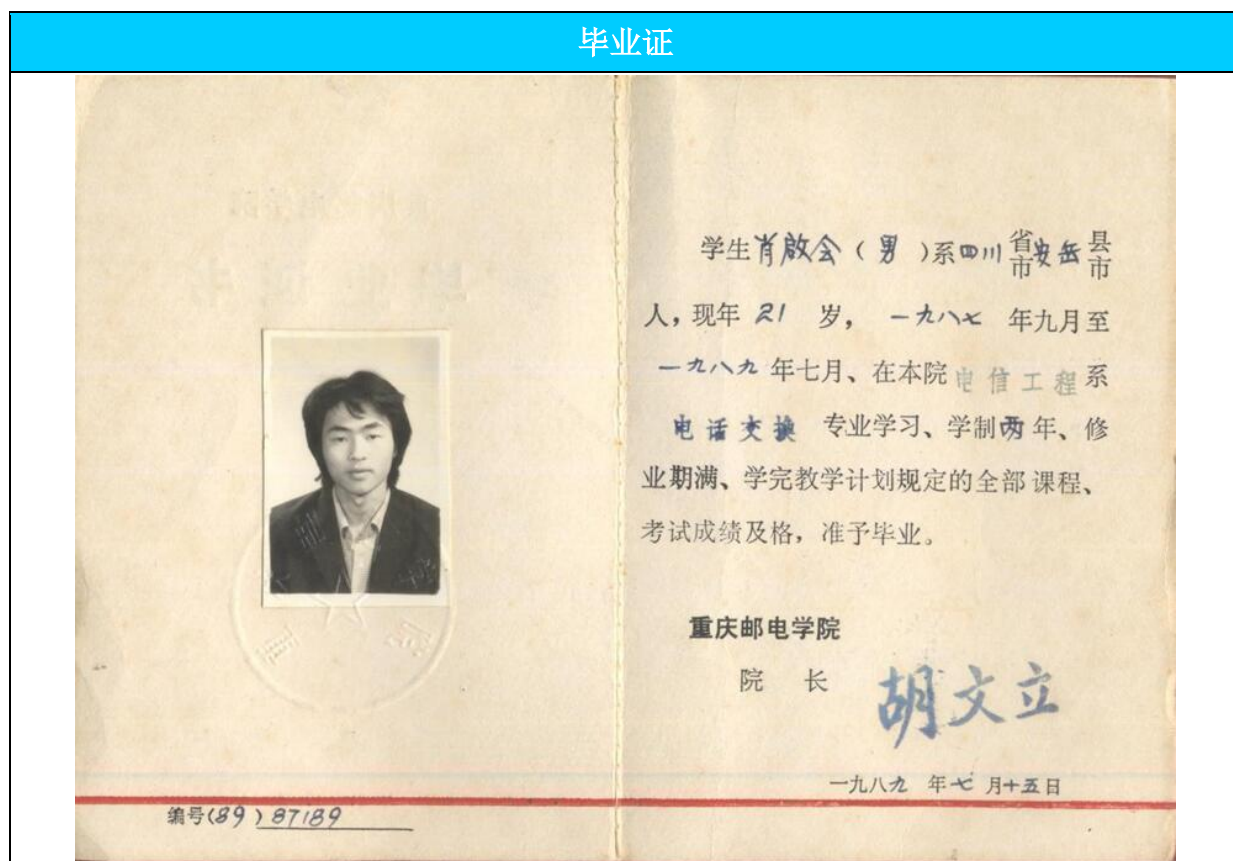 毕业证
学生肖啟会（男）系四川省市安岳县市
人，现年 21 岁， 一九八七 年九月至
一九八九 年七月、在本院电信工程系
电话交换 专业学习、学制两年、修
业期满、学完教学计划规定的全部课程、
考试成绩及格，准予毕业。
重庆邮电学院
院 长 胡文立
一九八九 年七月十五日
编号(89)87189